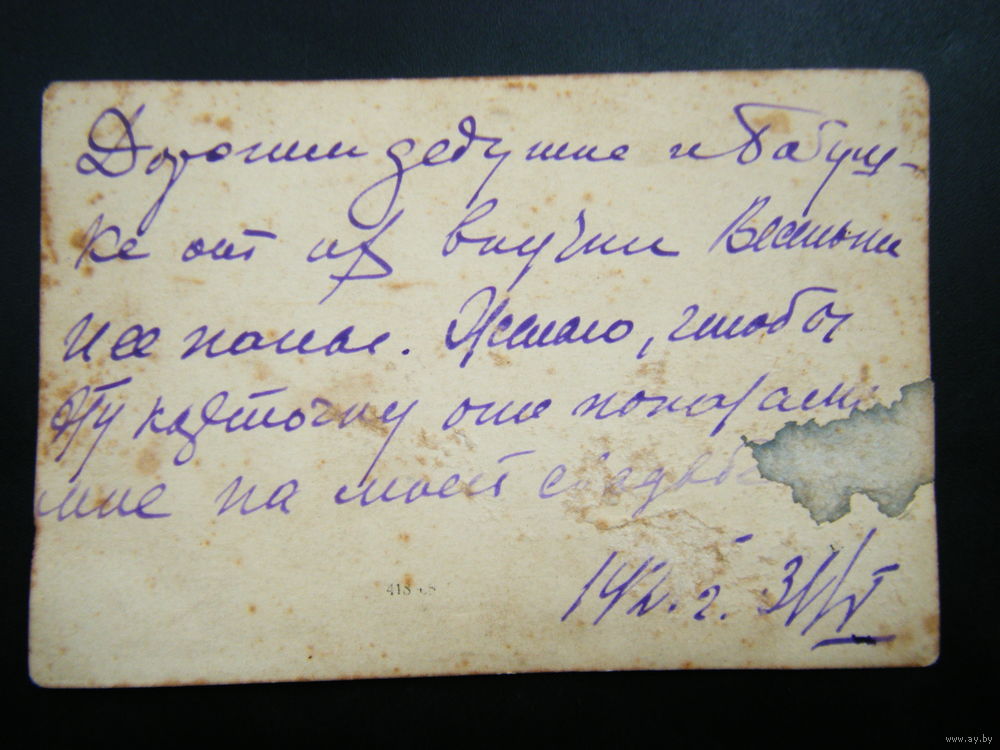 Дорогим дедушке и бабуш-
ке от их внучки
и ее папы. Желаю, чтобы
эту карточку они показали
мне на моей свадьбе
142. г. 31/V
418
www.ay.by